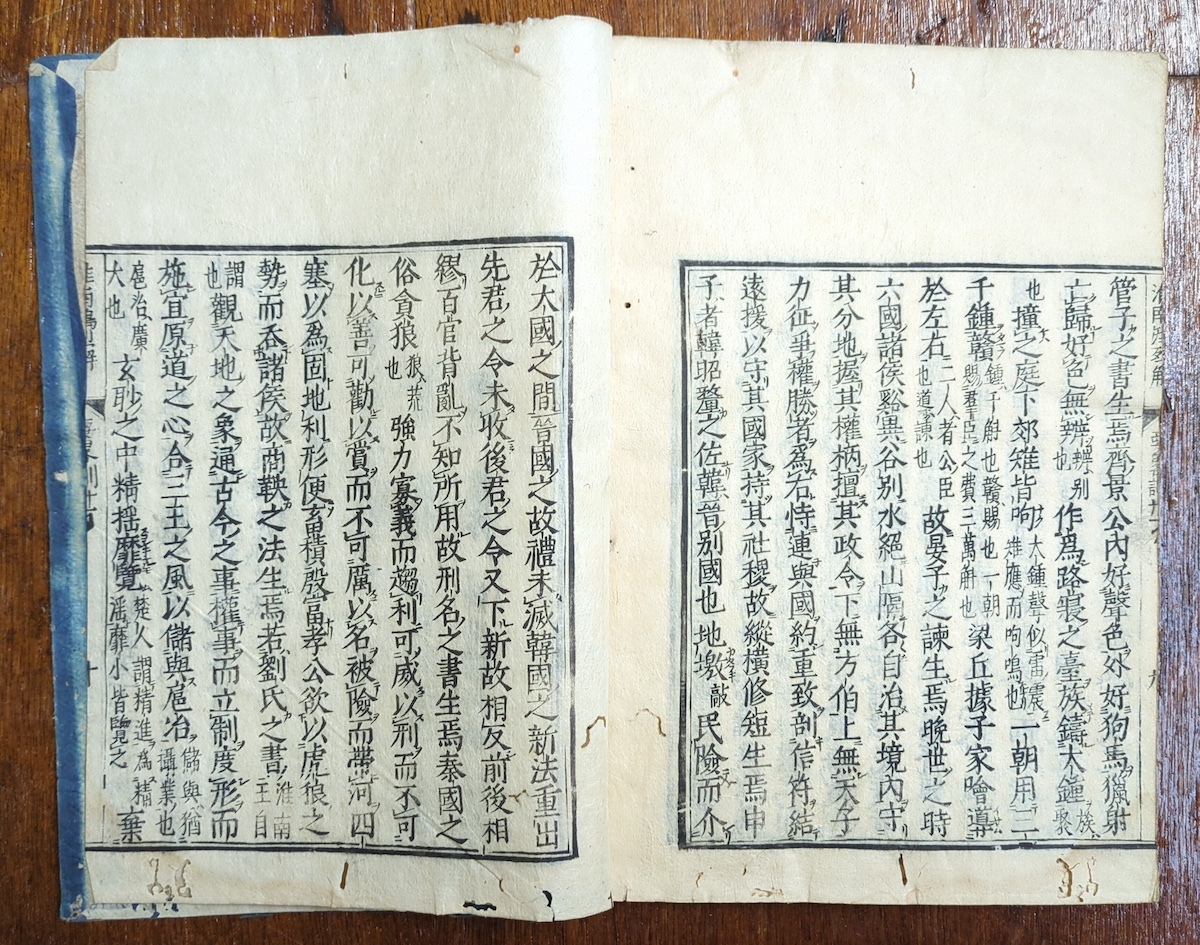 管子之書生焉齊景公內好聲色外好狗馬獵射
亡歸好色無辨辨別也作爲路寢之臺族鑄大鍾族聚
也撞之庭下郊雉皆呴大鍾聲似雷震雉應而呴鳴也一朝用三
千鍾贛鍾十斛也贛賜也一朝賜羣臣之費三萬斛也梁丘據子家噲導
於左右二人者公臣也道諫也故晏子之諫生焉晚世之時
六國諸侯谿異谷別水絕山隔各自治其境內守
其分地握其權柄擅其政令下無方伯上無天子
力征爭權勝者爲右恃連與國約重致剖信符結
遠援以守其國家持其社稷故縱橫修短生焉申
子者韓昭釐之佐韓晉別國也地墩民險而介
於大國之間晉國之故禮未滅韓國之新法重出
先君之令未收後君之令又下新故相反前後相
繆百官背亂不知所用故刑名之書生焉秦國之
俗貪狼狼荒也強力寡義而趨利可威以刑而不可
化以善可勸以賞而不可厲以名被險而帶河四
塞以爲固地利形便畜積殷富孝公欲以虎狼之
勢而吞諸侯故商鞅之法生焉若劉氏之書淮南王自
謂也觀天地之象通古今之事權事而立制度形而
施宜原道之心合三王之風以儲與扈冶儲與猶攝業也
扈冶廣大也玄眇之中精搖靡覽楚人謂精進爲精滛靡小皆覽之棄